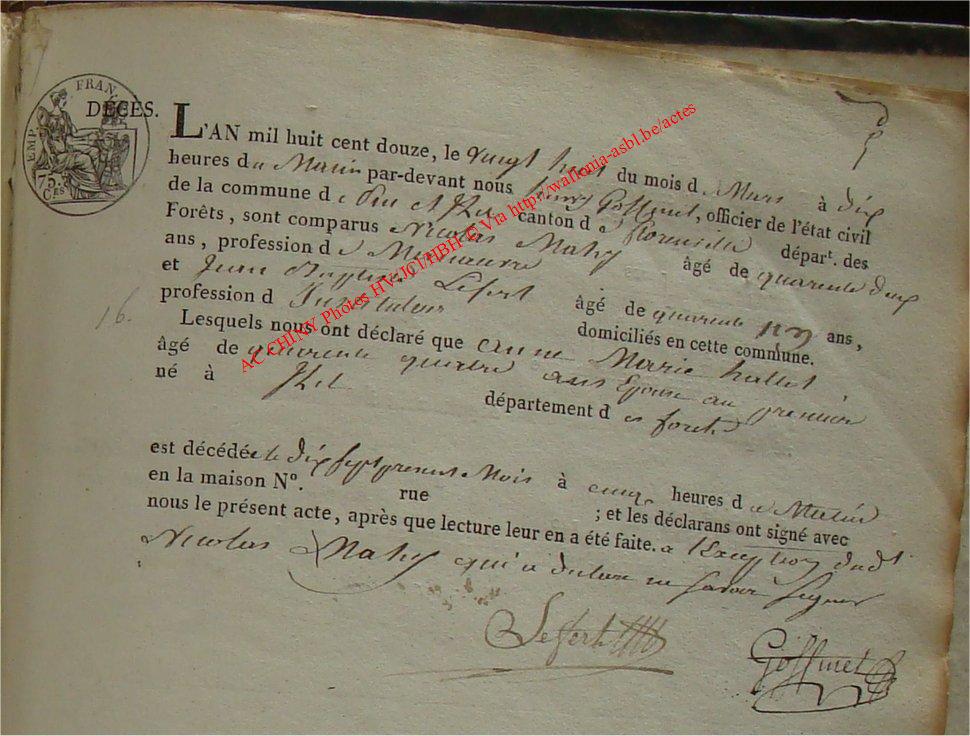 EMP. FRAN.
75 Ces
DÉCÈS.
L'AN mil huit cent douze, le vingt du mois de Mars à dix
heures du Matin par-devant nous Goffinet, officier de l'état civil
de la commune de canton de florenville dépar^t. des
Forêts, sont comparus Nicolas Mahy âgé de quarente deux
ans, profession de Manoeuvre
et Jean Baptiste Lefert âgé de quarente ans,
profession d'Instituteur domiciliés en cette commune.
16.
Lesquels nous ont déclaré que anne Marie hallet
âgé de quarente quatre ans Epouse au premier
né à Izel département des forets
est décédée le dix sept present Mois à cinq heures de Matin
en la maison N°. rue ; et les déclarans ont signé avec
nous le présent acte, après que lecture leur en a été faite. a l'Exception dudt
Nicolas Mahy qui a declare ne savoir signer
Lefert
Goffinet
AC CHINY Photos HV-JCI/HBH © Via http://wallonia-asbl.be/actes